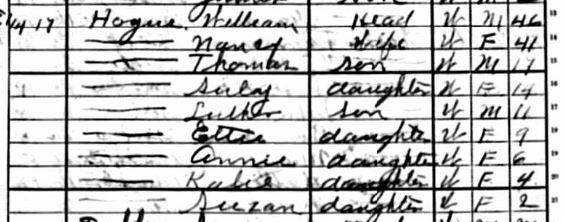 4417 Hogue William Head W M 46
Nancy Wife W F 41
Thomas son W M 17
daughter W F 14
Luther son W M 11
Ettie daughter W F 9
Annie daughter W F 6
Katie daughter W F 4
Suzan daughter W F 2